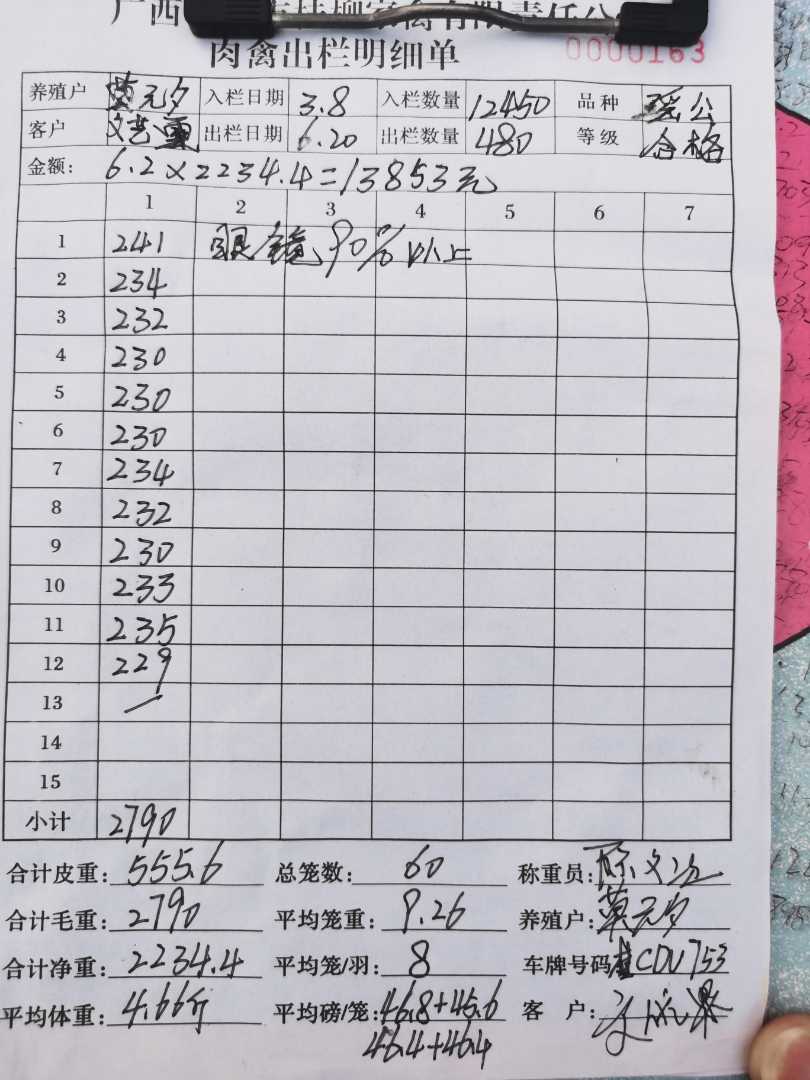 广西 桂柳家禽有限责任公
肉禽出栏明细单 0000163
养殖户 莫元夕 入栏日期 3.8 入栏数量 12450 品种 瑶公
客户 出栏日期 6.20 出栏数量 480 等级 合格
金额: 6.2×2234.4=13853元
1 2 3 4 5 6 7
1 241 眼镜90%以上
2 234
3 232
4 230
5 230
6 230
7 234
8 232
9 230
10 233
11 235
12 229
13 —
14
15
小计 2790
合计皮重: 555.6 总笼数: 60 称重员:
合计毛重: 2790 平均笼重: 9.26 养殖户: 莫元夕
合计净重: 2234.4 平均笼/羽: 8 车牌号码: 桂CDU753
平均体重: 4.66斤 平均磅/笼: 46.8+45.6 客 户:
46.4+46.4